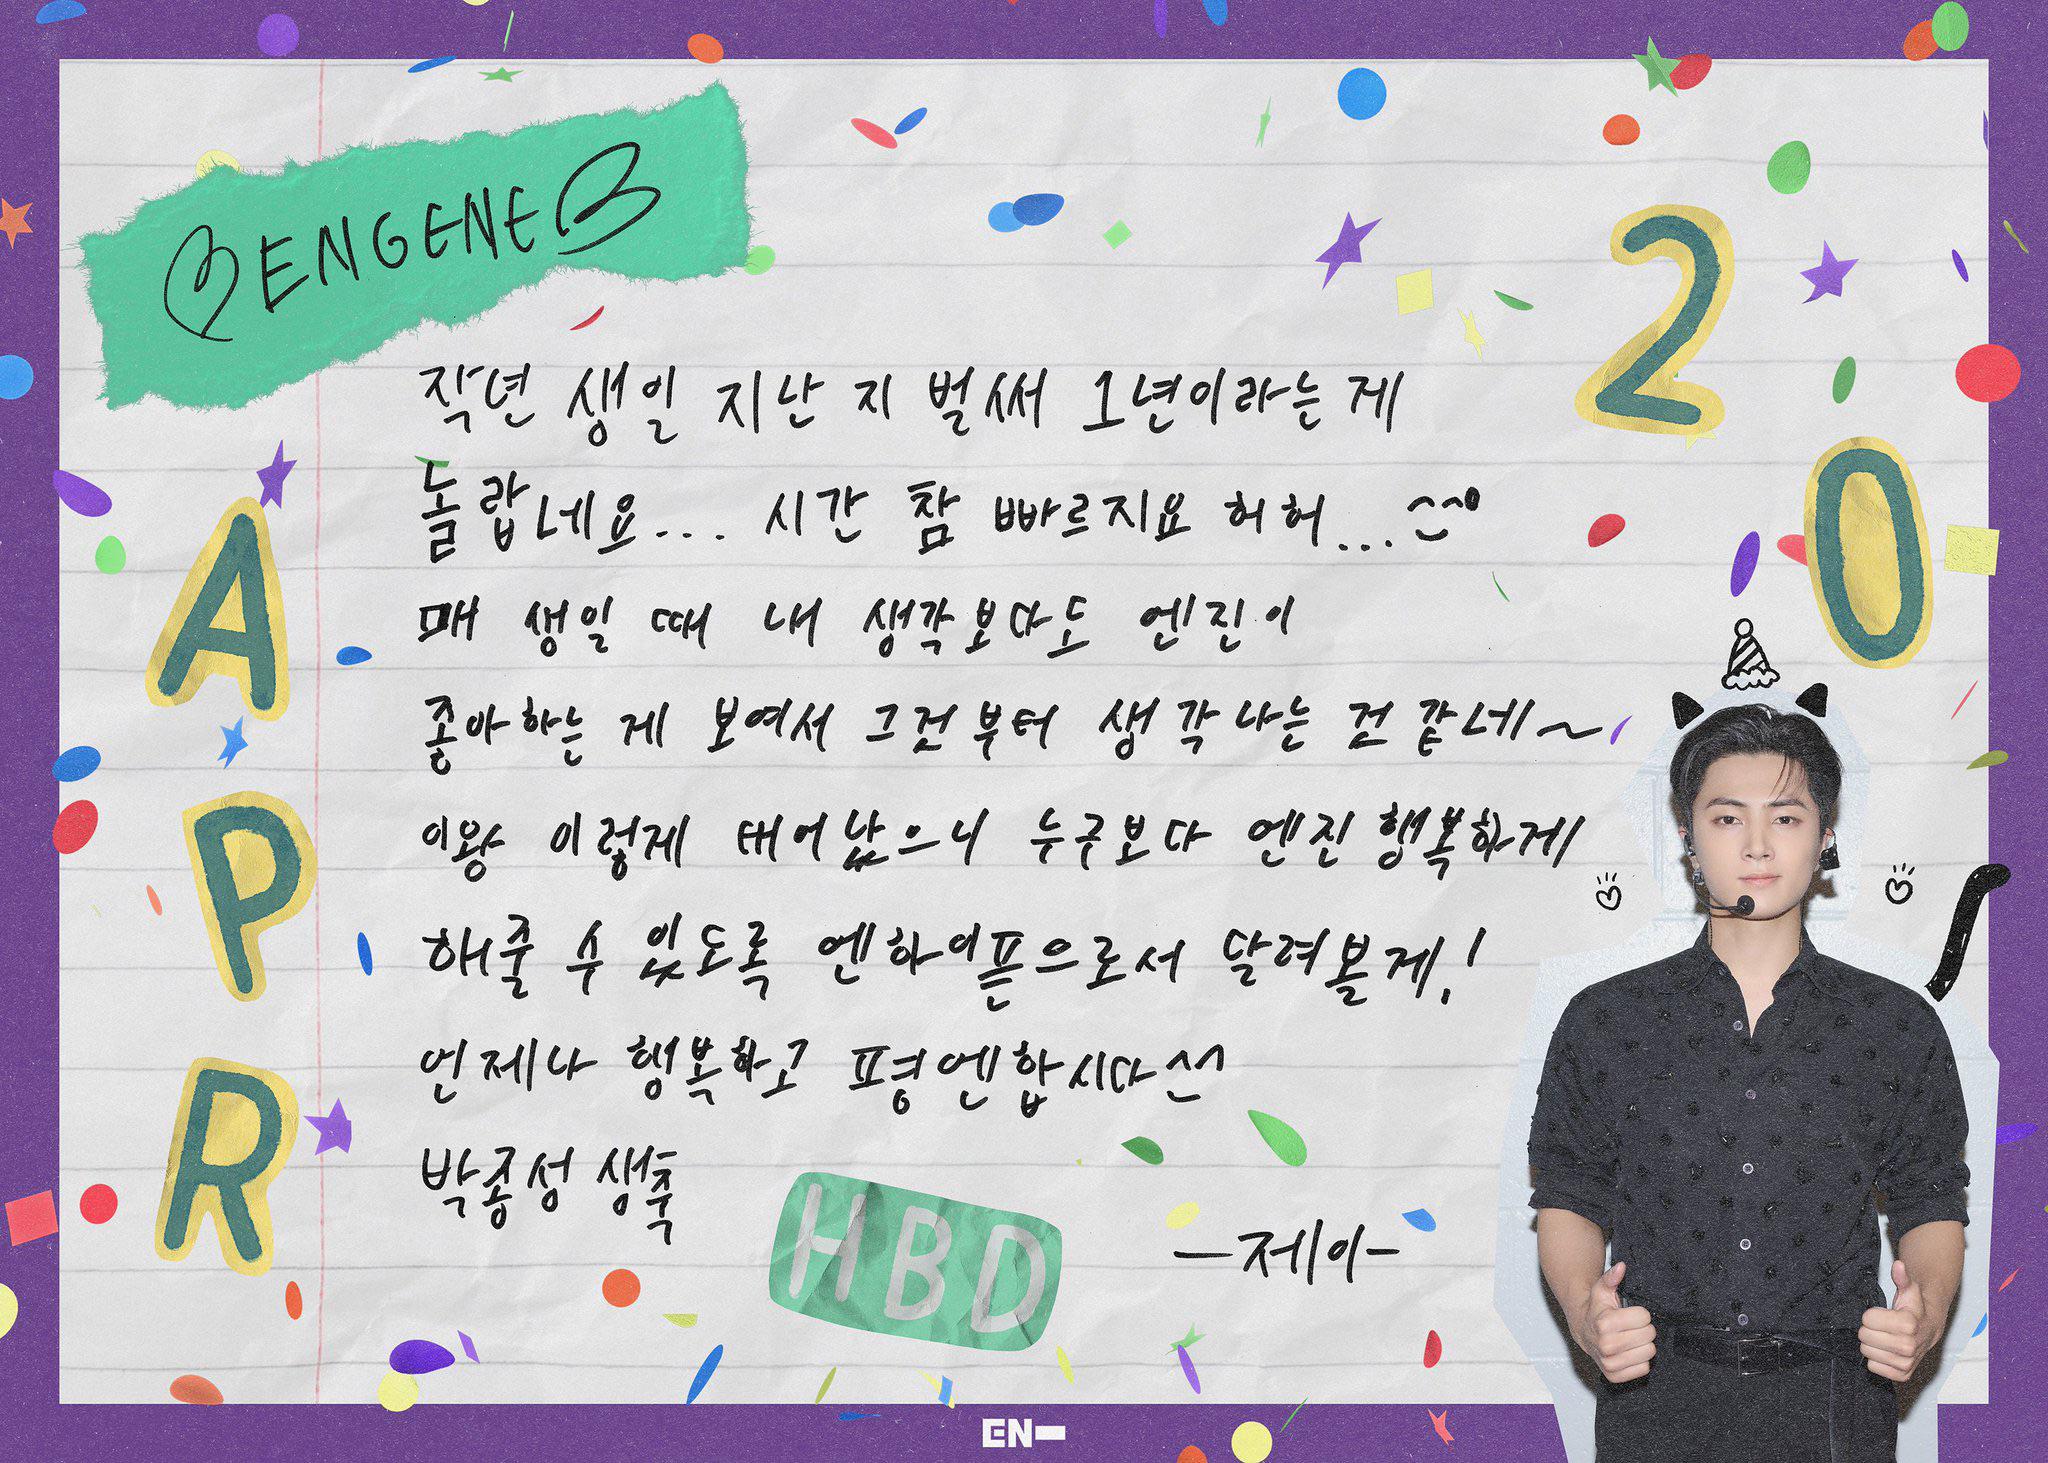 ENGENE
작년 생일 지난 지 벌써 1년이라는게
놀랍네요... 시간 참 빠르지요 허허...^^;
매 생일 때 내 생각보다도 엔진이
좋아하는 게 보여서 그런부터 생각나는 것 같네~
이왕 이렇게 태어났으니 누구보다 엔진 행복하게
해줄 수 있도록 엔하이픈으로서 달려볼게!
언제나 행복하고 평엔합시다^^
박종성 생축
-제이-
20
APR
HBD
EN-